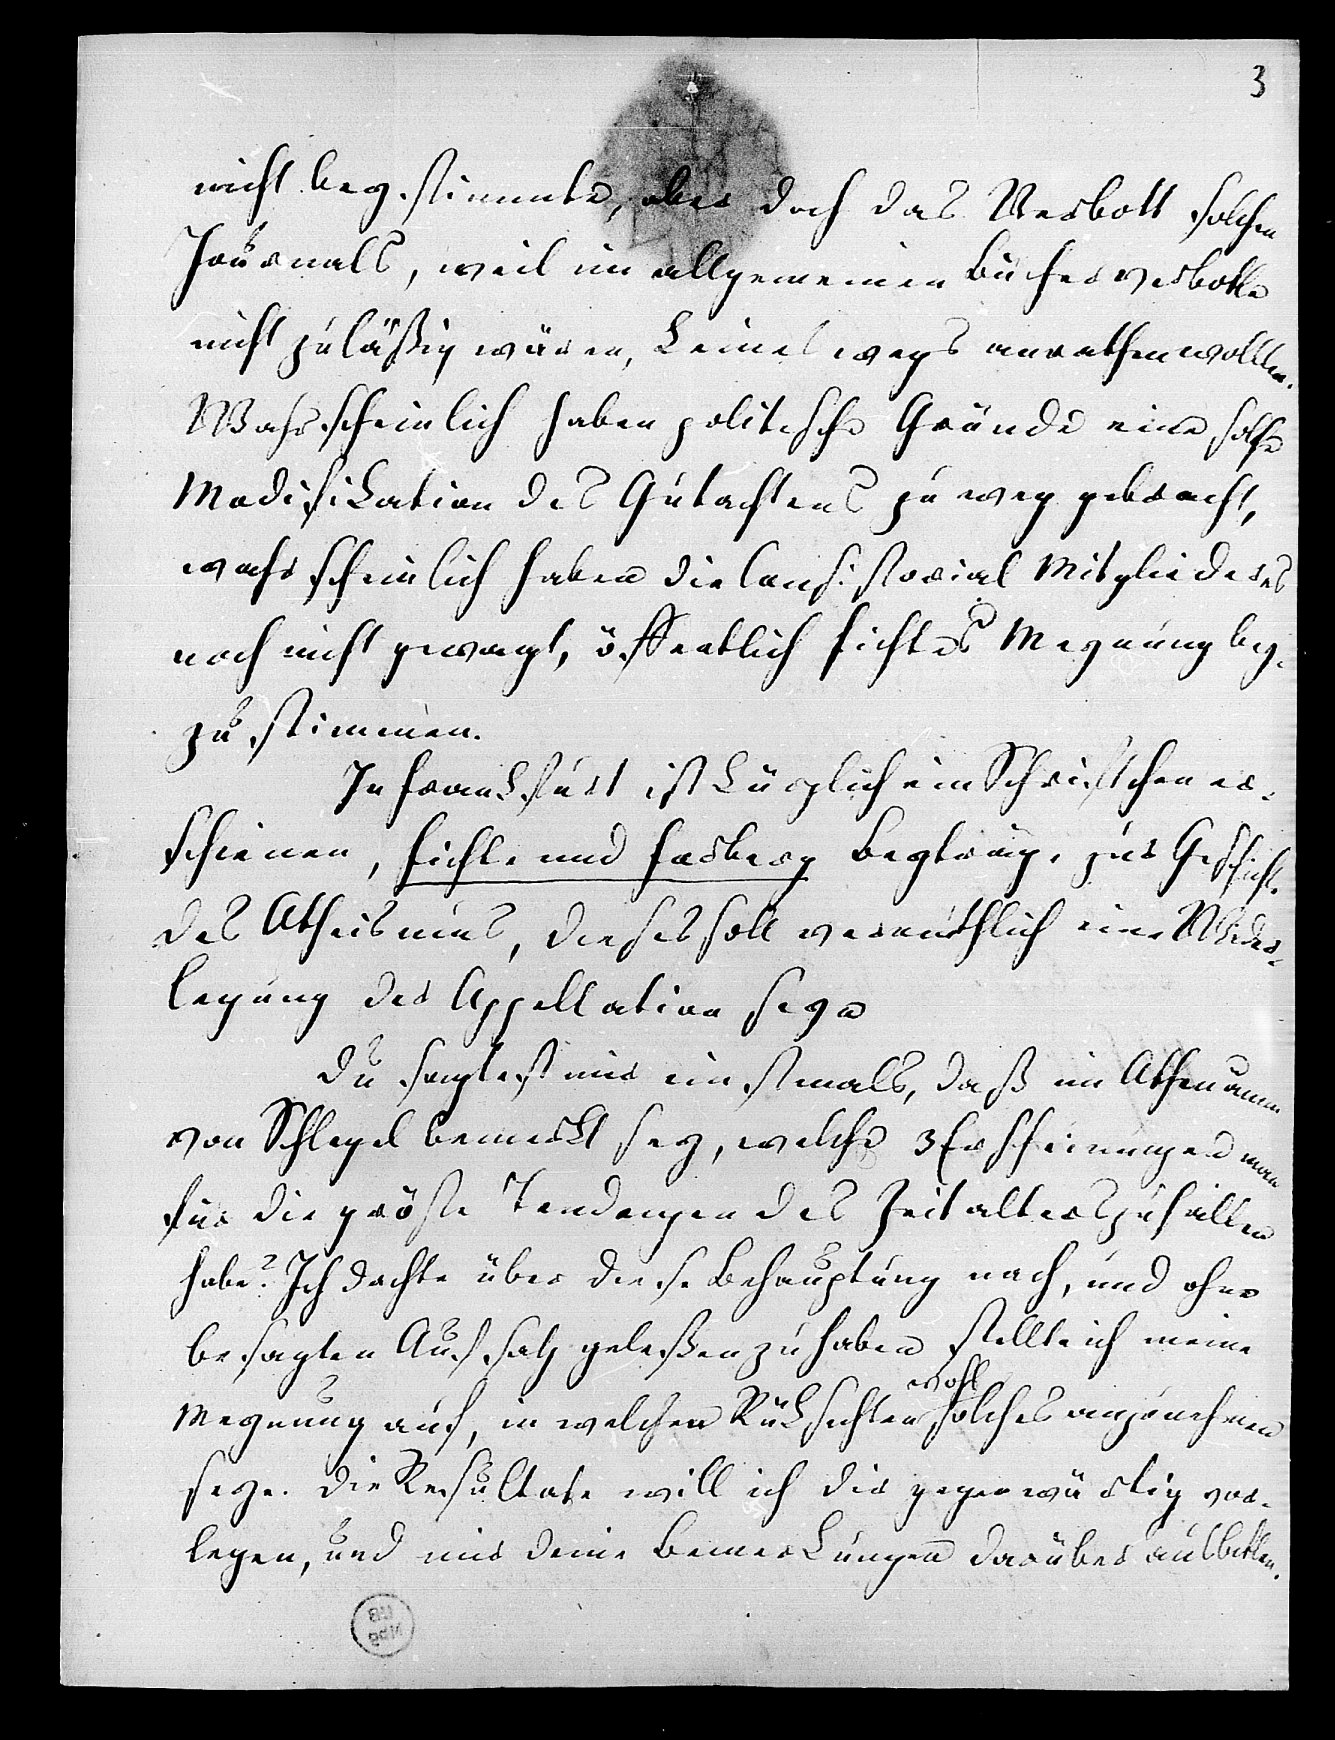 3
nicht beystimmte, aber doch das Verbott solchen
Journals, weil im allgemeinen Bücherverbotte
nicht zuläßig wären, keines wegs anrathen wollten.
Wahrscheinlich haben politische Gründe eine solche
Modifikation des Gutachtens zu weg gebracht,
wahrscheinlich haben die Consistorial Mitglieder es
noch nicht gewagt, öffentlich Fichtes Meynung bey-
zustimmen.
In Frankfurt ist kürzlich ein Schriftchen er-
schienen, Fichte und Forberg Beyträge zur Geschichte
des Atheismus, dieses soll vermuthlich eine Wider-
legung der Appellation seyn
Du sagtest mir einstmals, daß im Athenäum
von Schlegel bemerkt sey, welche 3 Erscheinungen man
für die größte Tendenzen des Zeitalters zu halten
habe? Ich dachte über diese Behauptung nach, und ohne
besagten Aufsatz geleßen zu haben stellte ich meine
wohl
Meynung auf, in welchen Rüksichten solches anzunehmen
seye. Die Resultate will ich dir gegenwärtig vor-
legen, und mir deine Bemerkungen darüber ausbitten.